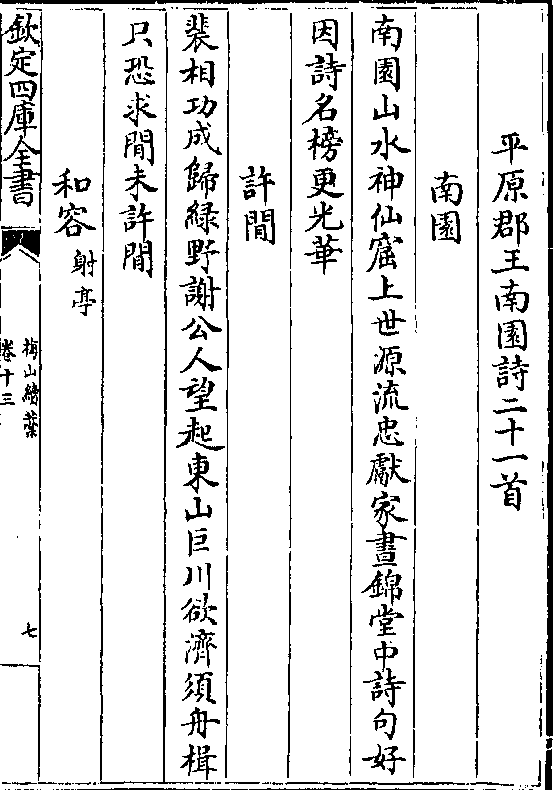 平原郡王南園詩二十一首
南園
南園山水神仙窟上世源流忠獻家晝錦堂中詩句好
因詩名榜更光華
許閒
裴相功成歸綠野謝公人望起東山巨川欲濟須舟楫
只恐求閒未許閒
和容射亭
欽定四庫全書
梅山續藁
卷十三
七